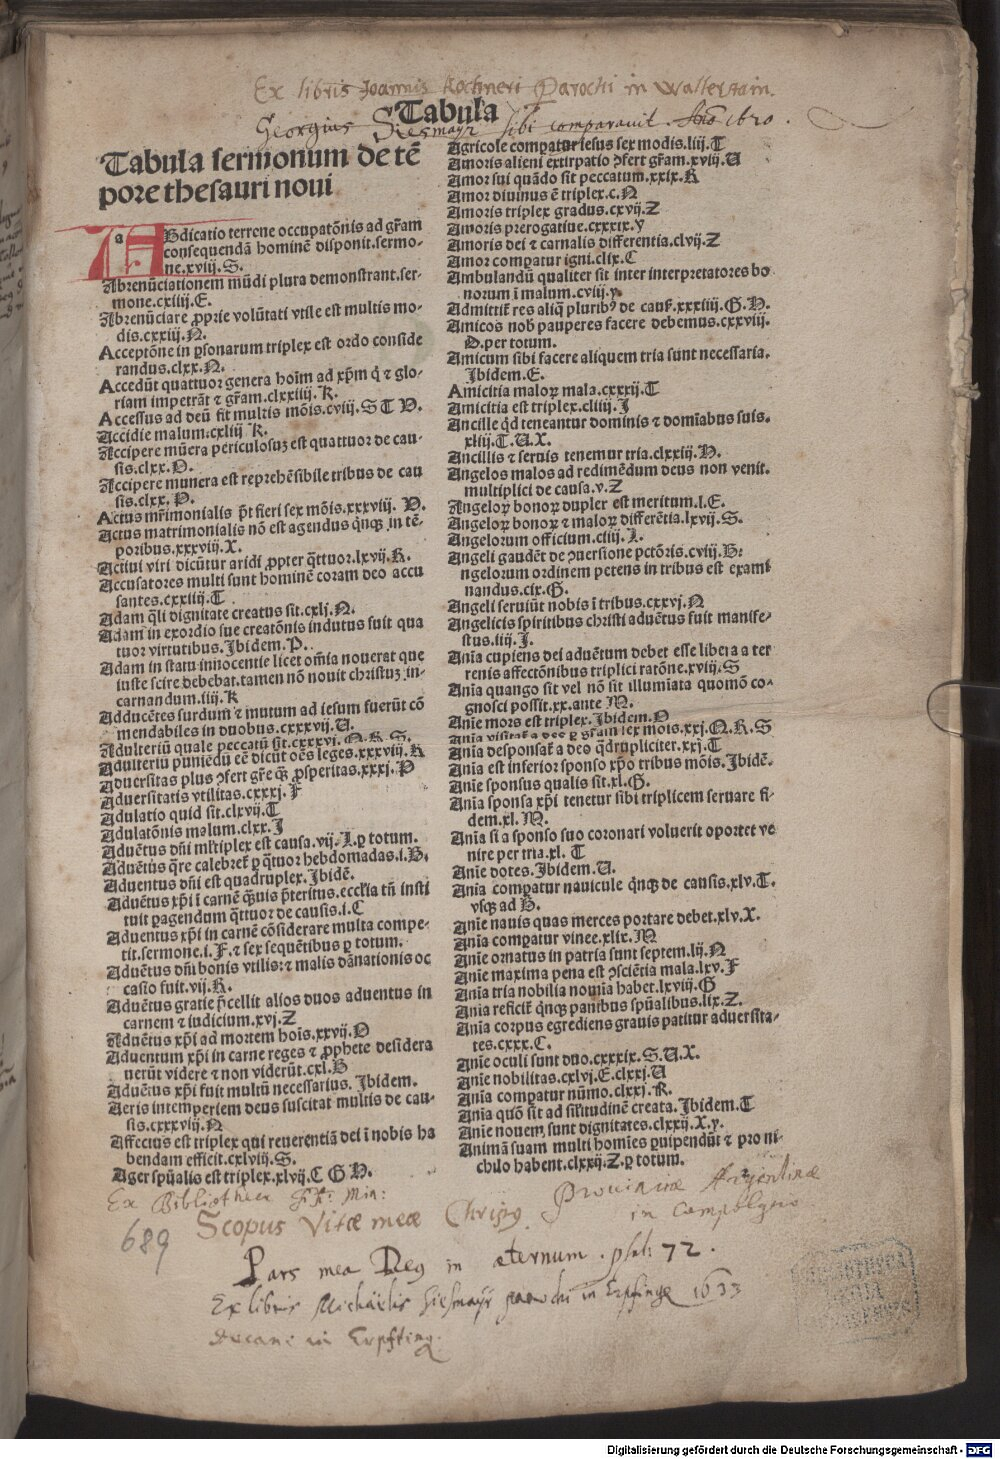 Ex libris Joannis Kochneri Parochi in Walterzain.
Tabula
Georgius Siesmayr sibi comparavit. Año 1620.
Tabula sermonum de tẽ
pore thesauri noui
ABdicatio terrene occupatõnis ad gr̃am
consequendã hominẽ disponit.sermo-
ne.xviij.S.
Abrenũciationem mũdi plura demonstrant.ser-
mone.cxliij.E.
Abrenũciare ꝓprie volũtati vtile est multis mo-
dis.cxxiij.N.
Acceptõne in ꝑsonarum triplex est ordo conside
randus.clxx.N.
Accedũt quattuor genera hoĩm ad xp̃m q̃ ⁊ glo-
riam impetrãt ⁊ gr̃am.clxxiiij.K.
Accessus ad deũ fit multis mõis.cviij.S T V.
Accidie malum.cxliij K.
Accipere mũera periculosuꝫ est quattuor de cau-
sis.clxx.O.
Accipere munera est reprehẽsibile tribus de cau
sis.clxx.P.
Actus mr̃imonialis p̃t fieri sex mõis.xxxviij. V.
Actus matrimonialis nõ est agendus q̃nqꝫ in tẽ-
poribus.xxxviij.X.
Actiui viri dicũtur aridi ꝓpter q̃ttuor.lxvij.K.
Accusatores multi sunt hominẽ coram deo accu
santes.cxxiiij.T
Adam q̃li dignitate creatus sit.cxlj.N.
Adam in exordio sue creatõnis indutus fuit qua
tuor virtutibus.Ibidem.P.
Adam in statu innocentie licet om̃ia nouerat que
iuste scire debebat.tamen nõ nouit christuꝫ in-
carnandum.iiij.K
Adducẽtes surdum ⁊ mutum ad iesum fuerũt cõ
mendabiles in duobus.cxxxvij.U.
Adulteriũ quale peccatũ sit.cxxxvj.Q.R.S.
Adulteriũ puniẽdũ eẽ dicũt oẽs leges.xxxviij.K
Aduersitas plus ↄfert gr̃e qꝫ̃ ꝓsperitas.xxxj.P
Aduersitatis vtilitas.cxxxj.F
Adulatio quid sit.clxvij.T
Adulatõnis malum.clxx.I
Aduẽtus dñi mltiplex est causa.vij.I.ꝑ totum.
Aduẽtus q̃re calebret̃ ꝑ q̃tuor hebdomadas.i.B.
Aduentus dñi est quadruplex.Ibidẽ.
Aduẽtus xp̃i ĩ carnẽ qꝫ̃uis p̃teritus.eccl̃ia tñ insti
tuit ꝑagendum q̃ttuor de causis.i.C
Aduentus xp̃i in carnẽ cõsiderare multa compe-
tit.sermone.i.F.⁊ sex sequẽtibus ꝑ totum.
Aduẽtus dñi bonis vtilis:⁊ malis dãnationis oc
casio fuit.vij.K.
Aduẽtus gratie p̃cellit alios duos aduentus in
carnem ⁊ iudicium.xvj.Z
Aduẽtus xp̃i ad mortem hoĩs.xxvij.O
Aduentum xp̃i in carne reges ⁊ ꝓphete desidera
nerũt videre ⁊ non viderũt.cxl.B
Aduẽtus xp̃i fuit multũ necessarius. Ibidem.
Aeris intemperiem deus suscitat multis de cau-
sis.cxxxvlij.N
Affectus est triplex qui reuerentiã dei ĩ nobis ha
bendam efficit.cxlviij.S.
Ager spũalis est triplex.xlvij.C G H.
Agricole compatur iesus sex modis.liij.T
Amoris alieni extirpatio ↄfert gr̃am.xviij.U
Amor sui quãdo sit peccatum.xxix.K
Amor diuinus ẽ triplex.c.N
Amoris triplex gradus.cxvij.Z
Amoris prerogatiue.cxxxix.y
Amoris dei ⁊ carnalis differentia.clvij.Z
Amor compatur igni.clix.C
Ambulandũ qualiter sit inter interpretatores bo
norum ĩ malum.cviij.y.
Admittit̃ res aliq̃ pluribꝰ de cauſ.xxxiiij.G.H.
Amicos nob̃ pauperes facere debemus.cxxviij.
D.per totum.
Amicum sibi facere aliquem tria sunt necessaria.
Ibidem.E.
Amicitia maloꝝ mala.cxxxij.T
Amicitia est triplex.cliiij.I
Ancille q̃d teneantur dominis ⁊ domĩabus suis.
xliij.T.U.X.
Ancillis ⁊ seruis tenemur tria.clxxij.H.
Angelos malos ad redimẽdum deus non venit.
multiplici de causa.v.Z
Angeloꝝ bonoꝝ dupler est meritum.l.E.
Angeloꝝ bonoꝝ ⁊ maloꝝ differẽtia.lxvij.S.
Angelorum officium.cliij.I.
Angeli gaudẽt de ↄuersione pctõris.cviij.H:
ngelorum ordinem petens in tribus est exami
nandus.cix.G.
Angeli seruiũt nobis ĩ tribus.cxxvj.N
Angelicis spiritibus christi aduẽtus fuit manife-
stus.iiij.I.
Ania cupiens dei aduẽtum debet esse libera a ter
renis affectõnibus triplici ratõne.xviij.S
Ania quango sit vel nõ sit illumĩata quomõ co-
gnosci possit.xx.ante M.
Anie mors est triplex.Ibidem.O
Ania visitat̃ a deo ꝑ gr̃am sex mõis.xxj.Q.R.S
Ania desponsat̃ a deo q̃drupliciter.xxj.T
Ania est inferior sponso xp̃o tribus mõis.Ibidẽ.
Anie sponsus qualis sit.xl.G.
Ania sponsa xp̃i tenetur sibi triplicem seruare fi-
dem.xl.M.
Ania si a sponso suo coronari voluerit oportet ve
nire per tria.xl. T
Anie dotes.Ibidem.U.
Ania compatur nauicule q̃nqꝫ de causis.xlv.T.
vsqꝫ ad B.
Anie nauis quas merces portare debet.xlv.X.
Ania compatur vinee.xlix.M
Anie ornatus in patria sunt septem.lij.N
Anie maxima pena est ↄsciẽtia mala.lxv.F
Ania tria nobilia nomĩa habet.lxviij.G
Ania reficit̃ q̃nqꝫ panibus spũalibus.lix.Z.
Ania corpus egrediens grauis patitur aduersita-
tes.cxxx.C.
Anie oculi sunt duo.cxxxix.S.U.X.
Anie nobilitas.cxlvj.E.clxxj.U
Ania compatur nũmo.clxxj.K.
Ania quõ sit ad sil̃itudinẽ creata.Ibidem.T
Anie nouem sunt dignitates.clxxij.X.y.
Animã suam multi homĩes ꝑuipendũt ⁊ pro ni-
chilo habent.clxxij.Z.ꝑ totum.
Ex Bibliotheca Min: Provinciæ Argentinæ
689 Scopus Vitæ meæ Christꝯ. in
Pars mea Deꝯ in æternum. psal: 72.
Ex libris Michaelis Siesmayr parochi in Erpfting 1633
decani in Erpfting.
Digitalisierung gefördert durch die Deutsche Forschungsgemeinschaft - DFG